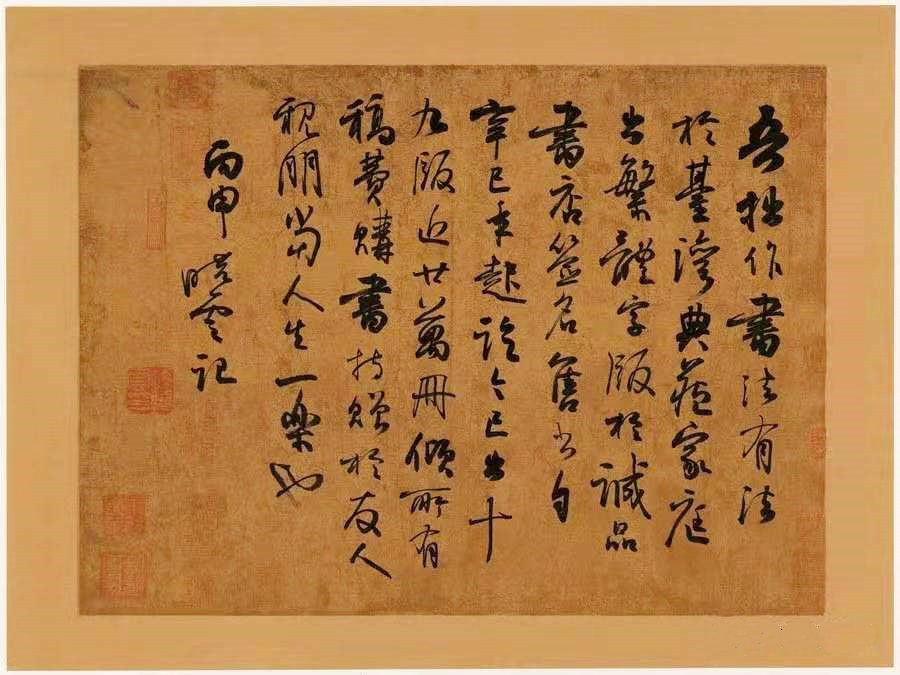 吾拙作書法有法
於臺灣典藏家庭
出繁體字版於誠品
書店簽名舊書自
辛巳年起迄今已出十
九版近廿萬冊傾所有
稿費購書持贈於友人
親朋當人生一樂也
丙申 皓雲記